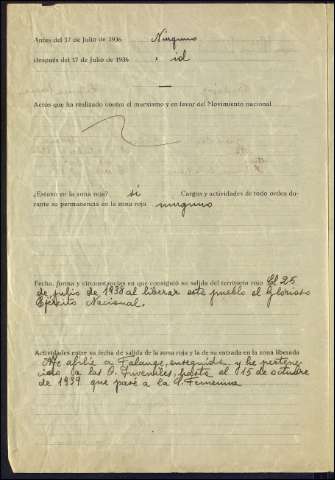 Antes del 17 de Julio de 1936 Ninguno
Después del 17 de Julio de 1936 " id
Actos que ha realizado contra el marxismo y en favor del Movimiento nacional
¿Estuvo en la zona roja? sí Cargos y actividades de todo orden du-
rante su permanencia en la zona roja ninguno
Fecha, forma y circunstancias en que consiguió su salida del territorio rojo El 25
de julio de 1938 al liberar este pueblo el Glorioso
Ejército Nacional.
Actividades entre su fecha de salida de la zona roja y la de su entrada en la zona liberada
Me afilié a Falange enseguida y he pertene-
cido a las O. Juveniles, hasta el 15 de octubre
de 1939 que pasé a la S. Femenina